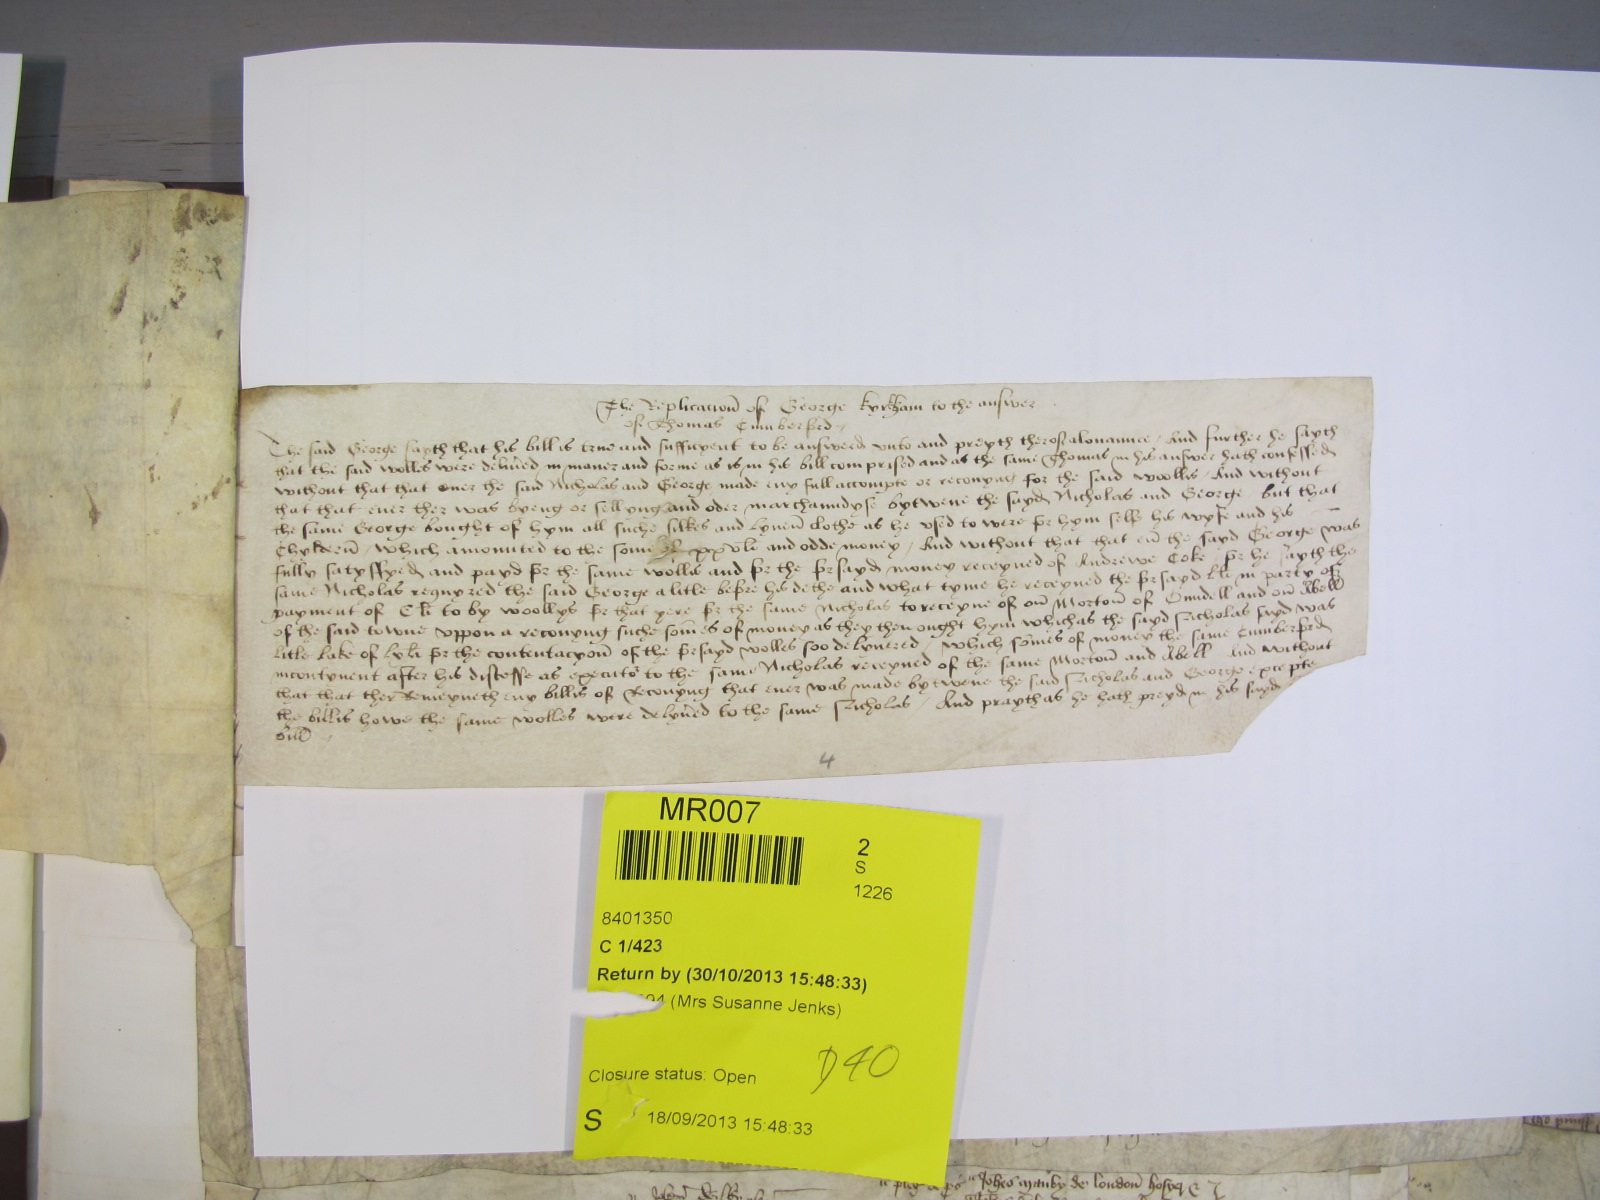 The Replicacion of George Kyrkham to the answer
of Thomas Cumberford
The said George sayth that his bill is true and sufficyent to be answered unto and preyth therof alowaunce / And further he sayth
that the said wolles were delivered in maner and forme as is in his bill comprised and as the same Thomas in his answer hath confessed
without that that ever the said Nicholas and George made eny full accompte or reconyng for the said woolls / And without
that that ever ther was byeng or sellyng and oder marchaundyse bytwene the sayd Nicholas and George / but that
the same George bought of hym all suche silkes and lynen clothe as he used to were for hym self his wyfe and his
Chyldern / which amounted to the som xxv li and odde money / And without that that ever the sayd George was
fully satysfyed and payd for the same wolles and for the forsayd money receyved of Andrewe Coke for he sayth the
same Nicholas requyred the said George a litle before his dethe and what tyme he receyved the forsayd li in party of
payment of C li to by woollys for that yere for the same Nicholas to receyve of on Morton of Oundell and on Abell
of the said towne uppon a reconyng suche somes of money as they then ought hym which as the sayd Nicholas sayd was
litle lake of for the contentacyon of the forsayd wolles soo delyvered / which somes of money the same Cumberford
incontynent after his discesse as executor to the same Nicholas receyved of the same Morton and Abell And without
that that ther remeyneth eny billis of reconyng that ever was made bytwene the said Nicholas and George excepte
the billis howe the same wolles were delyvered to the same Nicholas / And prayth as he hath preyd in his sayd
4
MR007
2
S
1226
8401350
C 1/423
Return by (30/10/2013 15:48:33)
(Mrs Susanne Jenks)
D40
Closure status: Open
S 18/09/2013 15:48:33